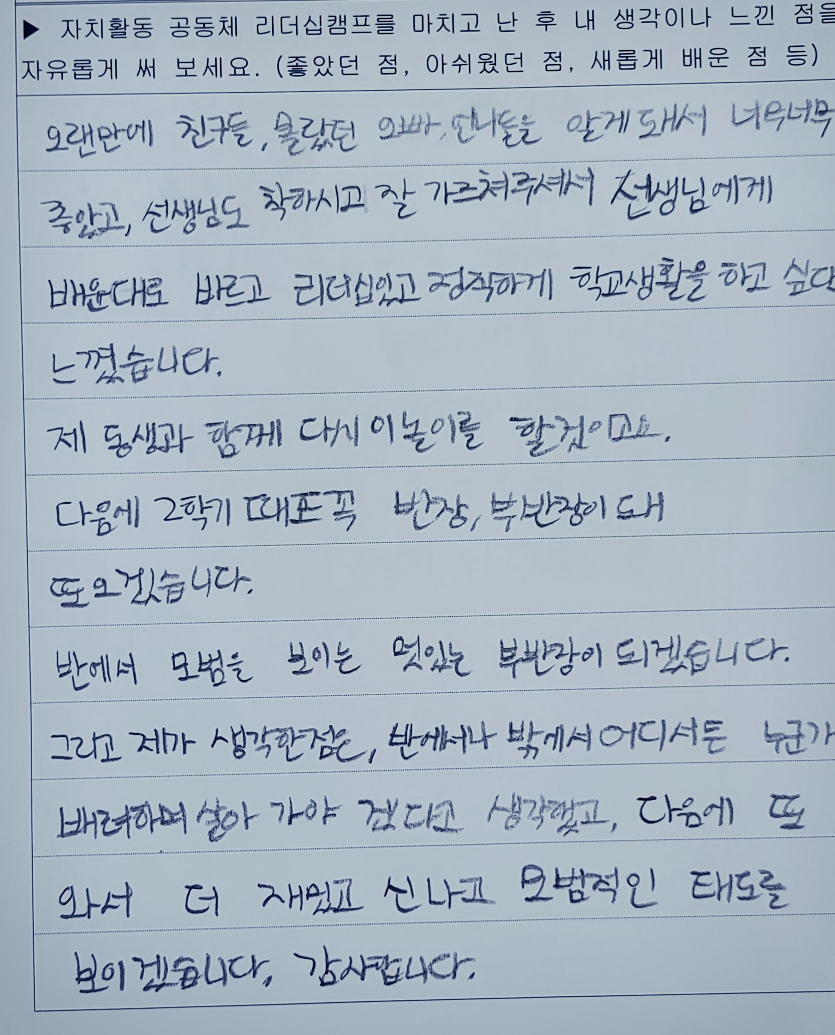 ▶ 자치활동 공동체 리더십캠프를 마치고 난 후 내 생각이나 느낀 점을
자유롭게 써 보세요. (좋았던 점, 아쉬웠던 점, 새롭게 배운 점 등)
오랜만에 친구들, 몰랐던 오빠, 언니들을 알게 돼서 너무너무
좋았고, 선생님도 착하시고 잘 가르쳐주셔서 선생님에게
배운대로 바르고 리더십있고 정직하게 학교생활을 하고 싶다
느꼈습니다.
제 동생과 함께 다시 이놀이를 할것이고요.
다음에 2학기 때도 꼭 반장, 부반장이 돼
또 오겠습니다.
반에서 모범을 보이는 멋있는 부반장이 되겠습니다.
그리고 제가 생각한점은, 반에서나 밖에서 어디서든 누군가
배려하며 살아 가야 겠다고 생각했고, 다음에 또
와서 더 재밌고 신나고 모범적인 태도를
보이겠습니다, 감사합니다.